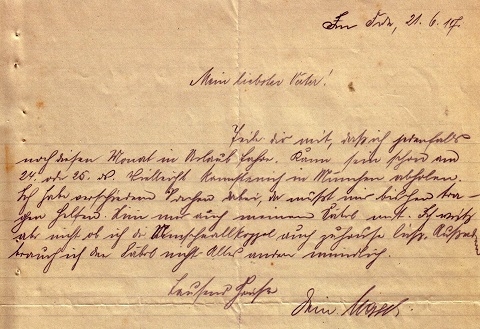 Im Felde, 21.6.17.
Mein liebster Vater!
Teile dir mit, daß ich jedenfalls
noch diesen Monat in Urlaub fahre. Kann sein schon am
24. ode 25. ds. Vielleicht kannst mich in München abholen.
Ich habe verschiedene Sachen dabei, da mußt mir bischen tra-
gen helfen. Nim mir auch meinen Säbel mit. Ich weiß
aber nicht ob ich die auch zuhause ließ.
brauch ich den Säbel nicht Alles andere mündlich.
Tausend Grüße
Dein